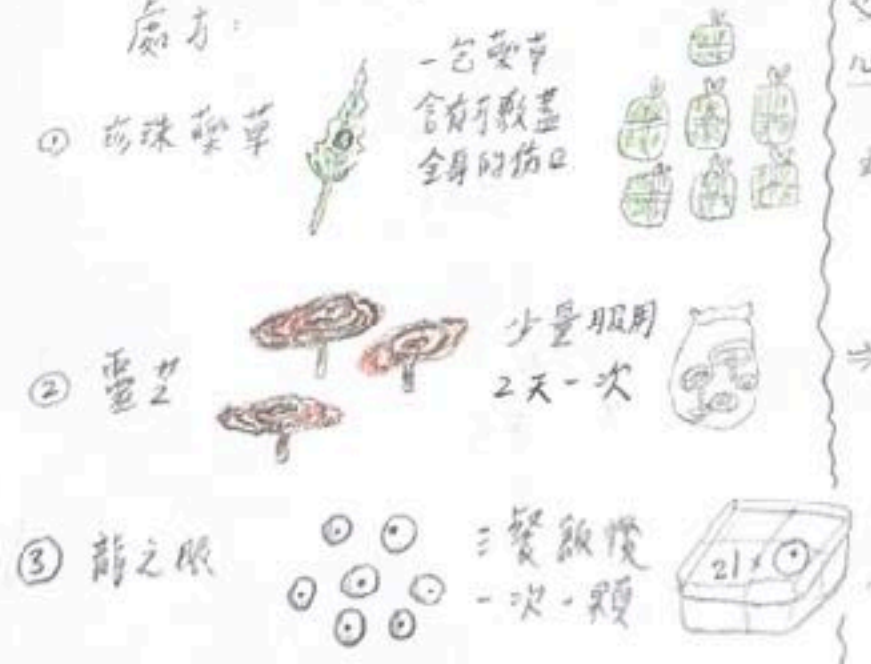 處方:
① 珍珠藥草
一包藥草
含有可敷蓋
全身的份量
② 靈芝
少量服用
2天一次
③ 龍之眼
三餐飯後
一次一顆
21x